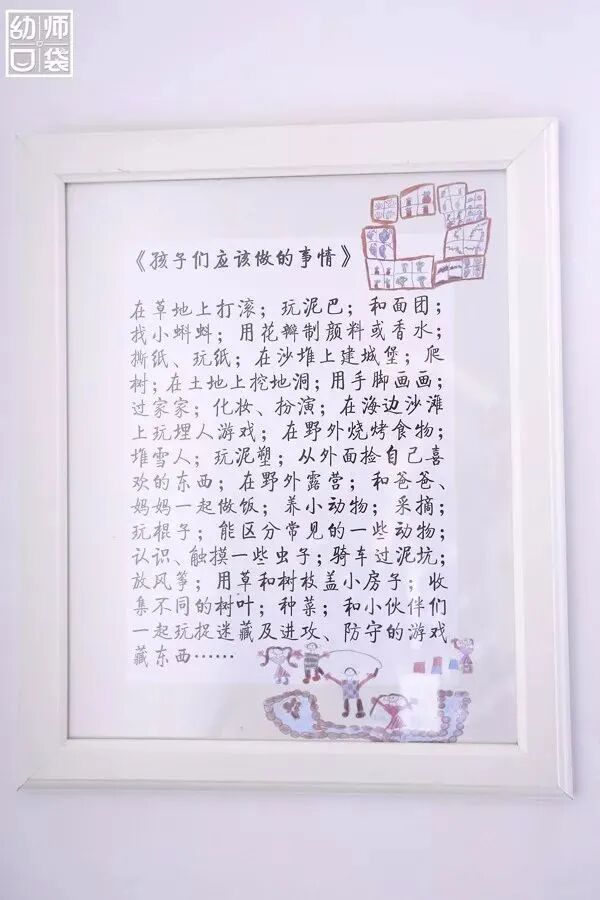 幼师口袋
《孩子们应该做的事情》
在草地上打滚；玩泥巴；和面团；
找小蝌蚪；用花瓣制颜料或香水；
撕纸、玩纸；在沙堆上建城堡；爬
树；在土地上挖地洞；用手脚画画；
过家家；化妆、扮演；在海边沙滩
上玩埋人游戏；在野外烧烤食物；
堆雪人；玩泥塑；从外面捡自己喜
欢的东西；在野外露营；和爸爸、
妈妈一起做饭；养小动物；采摘；
玩棍子；能区分常见的一些动物；
认识、触摸一些虫子；骑车过泥坑；
放风筝；用草和树枝盖小房子；收
集不同的树叶；种菜；和小伙伴们
一起玩捉迷藏及进攻、防守的游戏
藏东西……